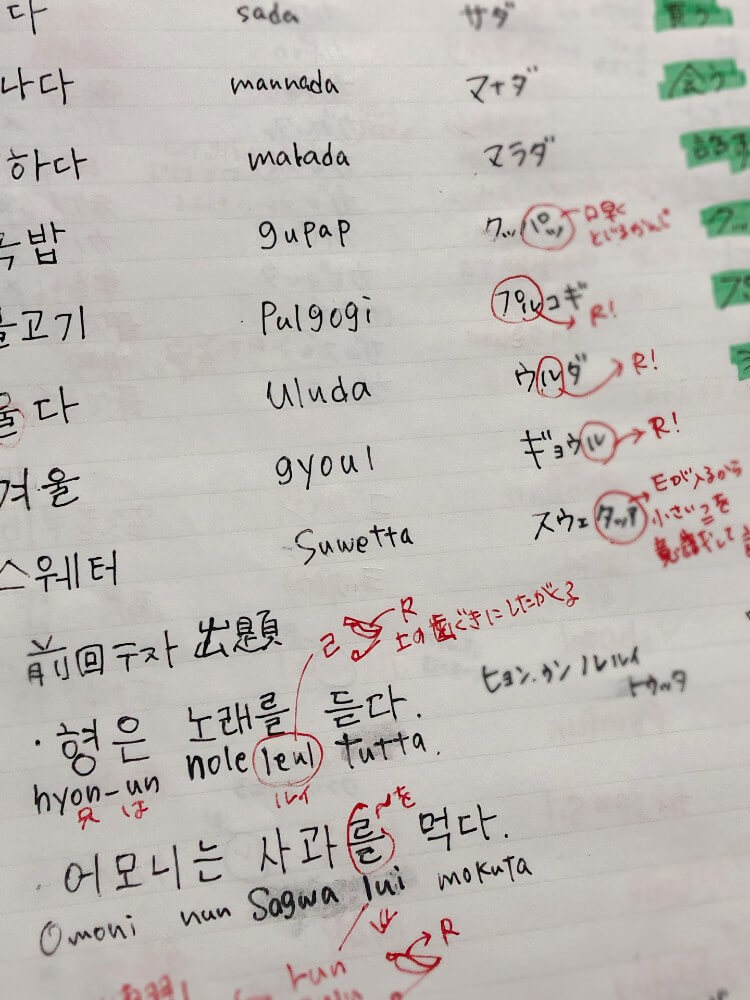 다 sada サダ 買う
나다 mannada マナダ 会う
하다 marada マラダ
밥 gupap クッパッ 口早く とじるかんじ
고기 Pulgogi プルコギ R!
울다 Uluda ウルダ R!
겨울 gyoul ギョウル R!
스웨터 Suwetta スウェタッア Eが入るから 小さいエを
前回テスト出題 ㄹ R 上の歯ぐきにしたがくる
・형은 노래를 듣다. ヒョン.ウン ノレルルイ トウッタ
hyon-un nole leul tutta.
兄 は ルイ を
・어머니는 사과를 먹다.
Omoni nun Sagwa lul mokuta
run R